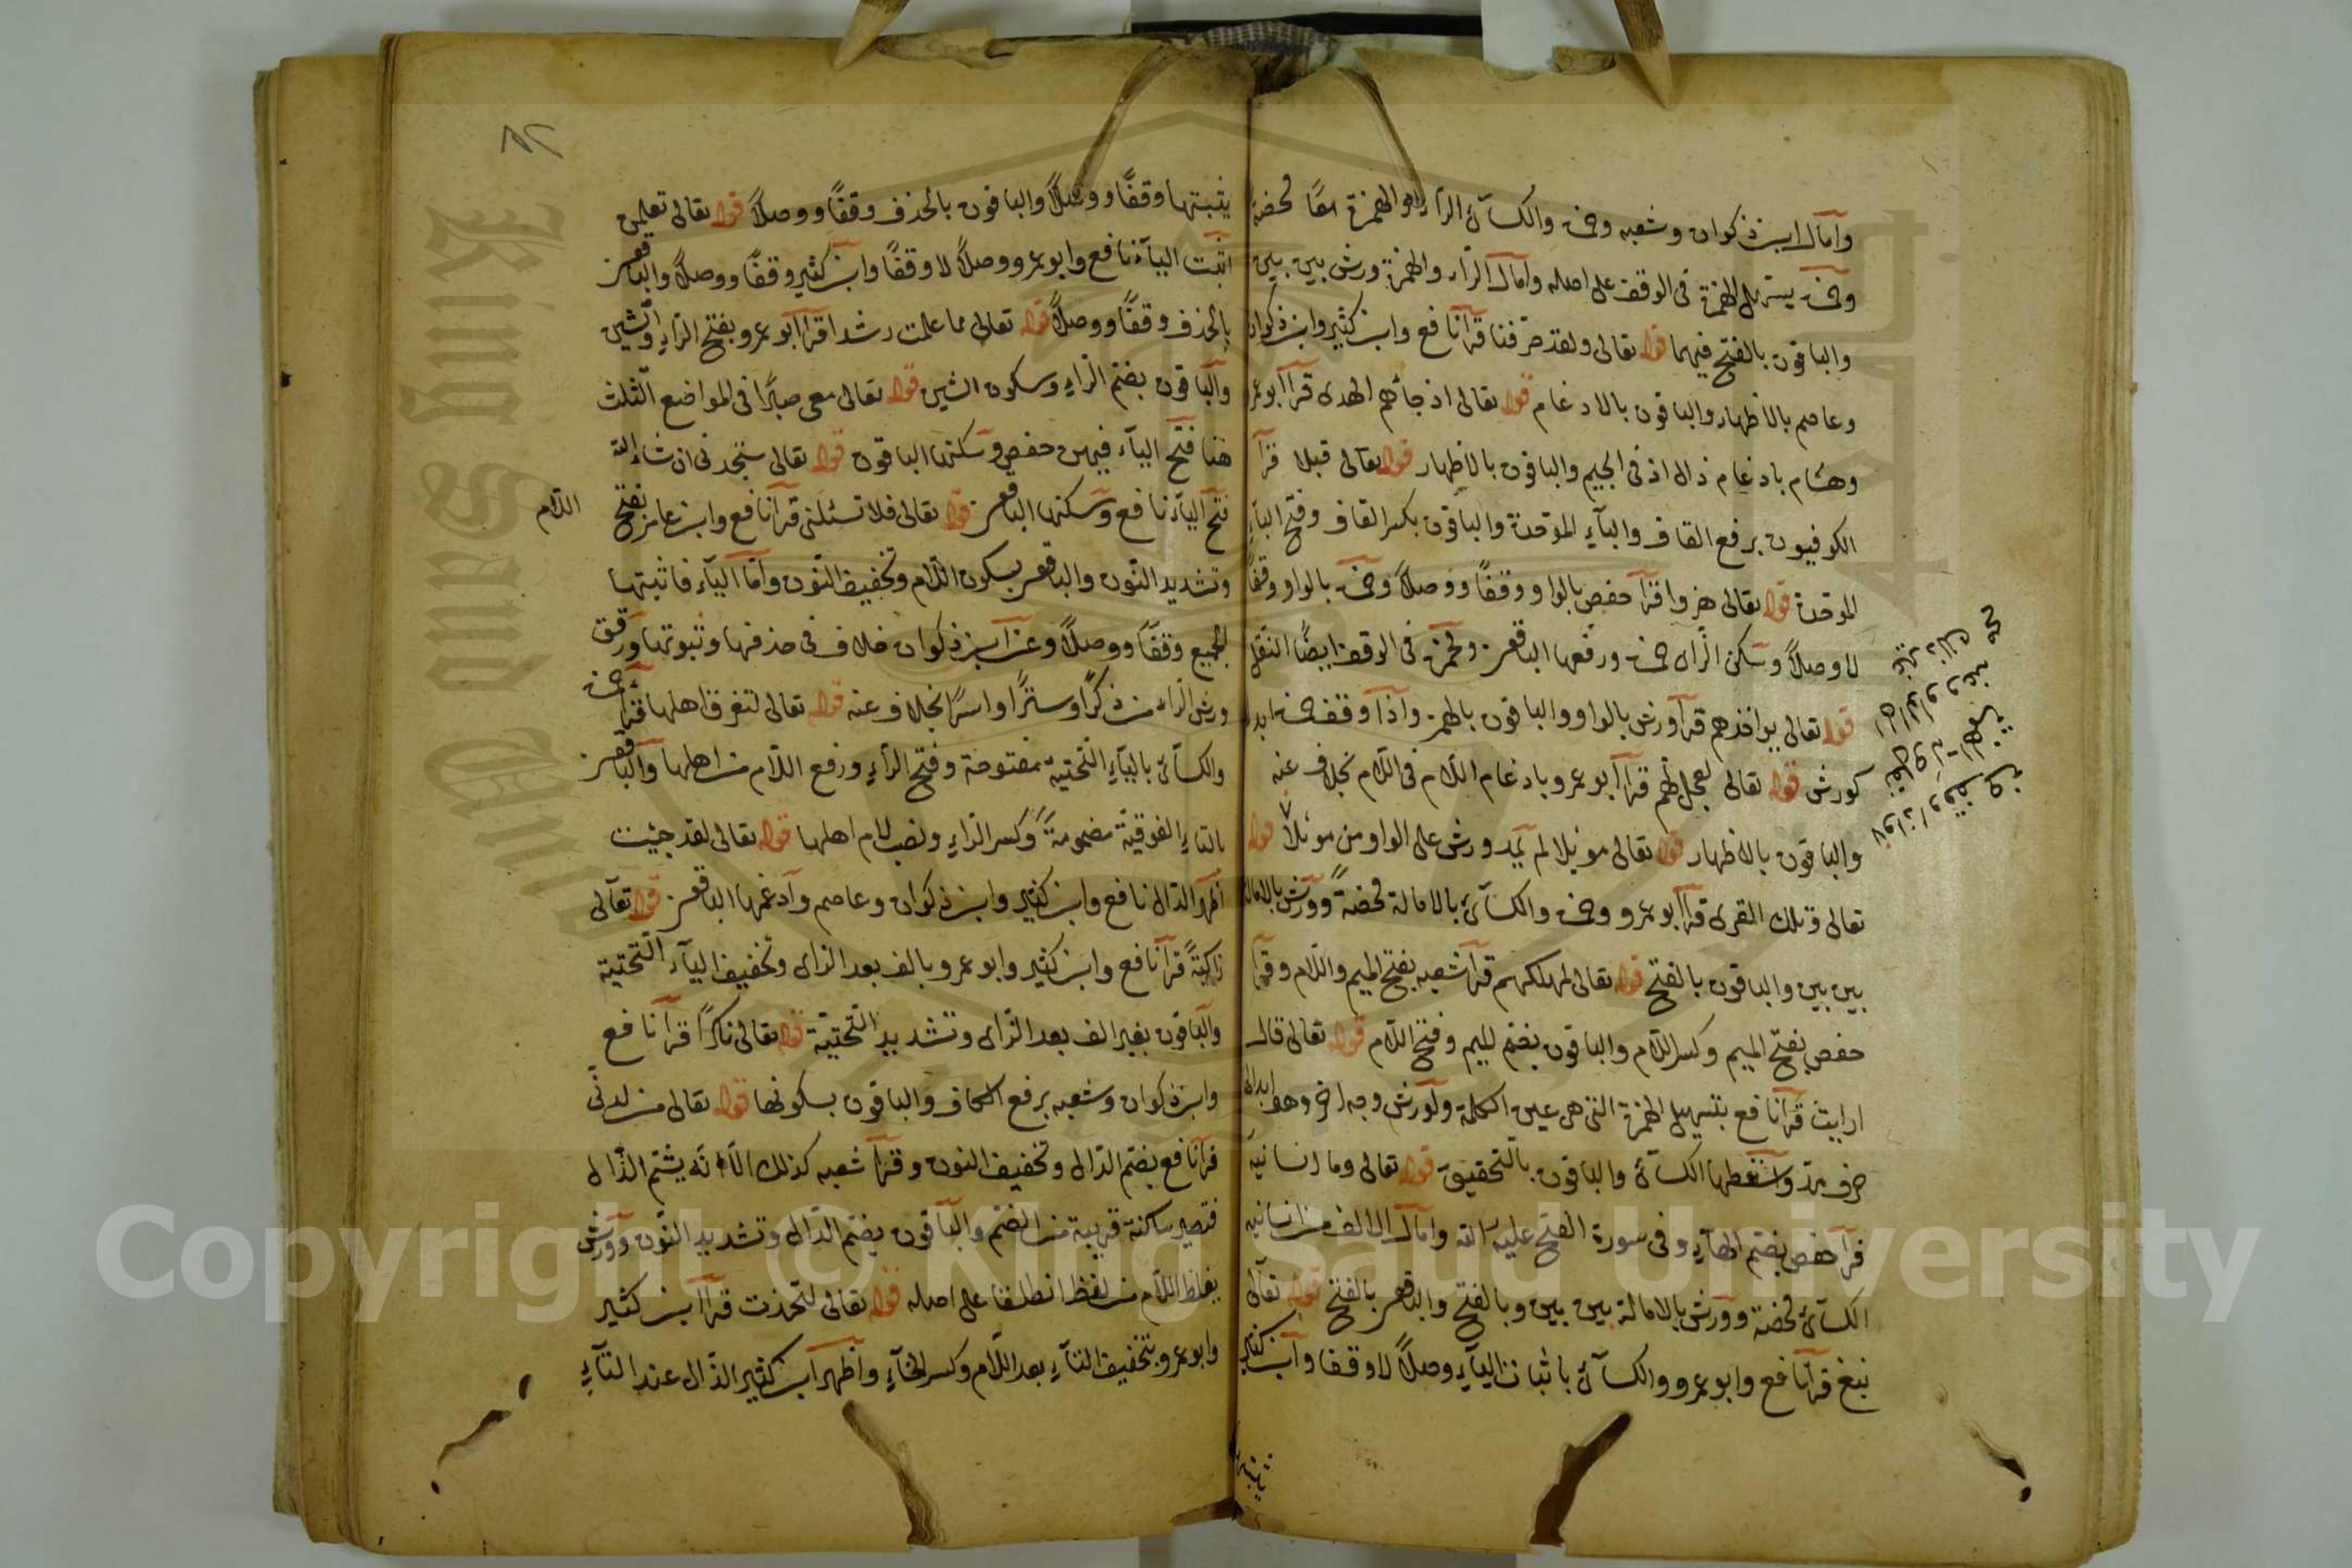 وأمال ابن ذكوان وشعبه وحمزه والكسائ الراء والهمزة معًا محضة
وحمزه يسهل الهمزة فى الوقف على اصله وأمال الراء والهمزة ورش بين بين
والباقون بالفتح فيهما قوله تعالى ولقد صرفنا قرأ نافع وابن كثير وابن ذكوان
وعاصم بالاظهار والباقون بالادغام قوله تعالى اذ جائهم الهدى قرأ أبو عمرو
وهشام بادغام ذال اذ فى الجيم والباقون بالاظهار قوله تعالى قبلا قرأ
الكوفيون برفع القاف والبآءِ الموحدة والباقون بكسر القاف وفتح الباءِ
الموحدة قوله تعالى هزوا قرأ حفص بالواو وقفًا ووصلاً وحمزه بالواو وقفًا
لا وصلاً وسكن الزاى حمزه ورفعها الباقون ولحمزه فى الوقف ايضًا النقل
قوله تعالى يواخذهم قرأ ورش بالواو والباقون بالهمز واذا وقف حمزه ابدل
كورش قوله تعالى لعجل لهم قرأ أبو عمرو بادغام اللام فى اللام بخلاف عنه
والباقون بالاظهار قوله تعالى موئلا لم يمد ورش على الواو من موئلاً قوله
تعالى وتلك القرى قرأ أبو عمرو وحمزه والكسائ بالامالة محضةً وورش بالامالة
بين بين والباقون بالفتح قوله تعالى لمهلكهم قرأ شعبه بفتح الميم واللام وقرأ
حفص بفتح الميم وكسر اللام والباقون بضم الميم وفتح اللام قوله تعالى قال
ارايت قرأ نافع بتسهيل الهمزة التى هى عين الكلمة ولورش وجه اخر وهو ابدالها
حرف مد واسقطها الكسائ والباقون بالتحقيق قوله تعالى وما انسانيه
قرأ حفص بضم الهآءِ وفى سورة الفتح عليه الله وامال الالف من انسانيه
الكسائ محضة وورش بالامالة بين بين وبالفتح والباقون بالفتح قوله تعالى
نبغ قرأ نافع وابو عمرو والكسائ باثبات اليآءِ وصلاً لا وقفا وابن كثير
يثبتها وقفًا ووصلاً والباقون بالحذف وقفًا ووصلاً قوله تعالى تعلمن
اثبت اليآء نافع وابو عمرو ووصلاً لا وقفًا وابن كثير وقفًا ووصلاً والباقون
بالحذف وقفًا ووصلاً قوله تعالى مما علمت رشدا قرأ أبو عمرو بفتح الراءِ والشين
والباقون بضم الراءِ وسكون الشين قوله تعالى معى صبرًا فى المواضع الثلث
هنا فتح اليآء فيهن حفص وسكنها الباقون قوله تعالى ستجدنى ان شاء الله
فتح اليآء نافع وسكنها الباقون قوله تعالى فلا تسئلنى قرأ نافع وابن عامر بفتح اللام
وتشديد النون والباقون بسكون اللام وتخفيف النون وأما اليآء فاثبتها
الجميع وقفًا ووصلاً وعن ابن ذكوان خلاف فى حذفها وثبوتها ورقق
ورش الراء من ذكرًا وسترًا وامرًا بخلاف عنه قوله تعالى لتغرق اهلها قرأ حمزه
والكسائ باليآءِ التحتية مفتوحة وفتح الراءِ ورفع اللام من اهلها والباقون
بالتاءِ الفوقية مضمومةً وكسر الراءِ ونصب لام اهلها قوله تعالى لقد جئت
اظهر الدال نافع وابن كثير وابن ذكوان وعاصم وأدغمها الباقون قوله تعالى
زاكيةً قرأ نافع وابن كثير وابو عمرو بالف بعد الزاى وتخفيف اليآء التحتية
والباقون بغير الف بعد الزاى وتشديد التحتية قوله تعالى نكرًا قرأ نافع
وابن ذكوان وشعبه برفع الكاف والباقون بسكونها قوله تعالى من لدنى
قرأ نافع بضم الدال وتخفيف النون وقرأ شعبه كذلك الا انه يشم الدال
فتصير ساكنة قريبة من الضم والباقون بضم الدال وتشديد النون وورش
يغلظ اللام من لفظ انطلقا على اصله قوله تعالى لتخذت قرأ ابن كثير
وابو عمرو بتخفيف التآءِ بعد اللام وكسر الخآءِ وأظهر ابن كثير الذال عند التآءِ
King Saud Univ
Copyright © King Saud University